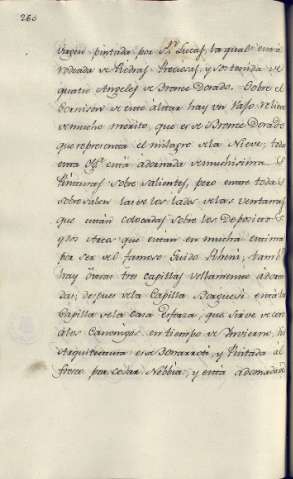 260
Virgen pintada por Sn. Lucas, la qual está
rodeada de Piedras Preciosas, y sostenida de
quatro Angeles de Bronce Dorado. Sobre el
Cornison de este altar hay un Vaxo relieve
de mucho merito, que es de Bronce Dorado
que representa el milagro de la Nieve; toda
esta está adornada de muchisimas
Pinturas sobresalientes, pero entre todas
sobresalen las de los lados de las ventanas
que están colocadas sobre los Depositos
y dos Arcos que estan en mucha estima
por ser del famoso Guido Rheni; tambn.
hay otras tres capillas vellamente adorna
das; despues de la Capilla Borguesi está la
Capilla de la Casa Esforza, que sirve de coro
á los Canonigos en tiempo de Invierno, su
Arquitectura es de Bonarroti, y Pintada al
fresco por Cesar Nebbia, y esta adornada